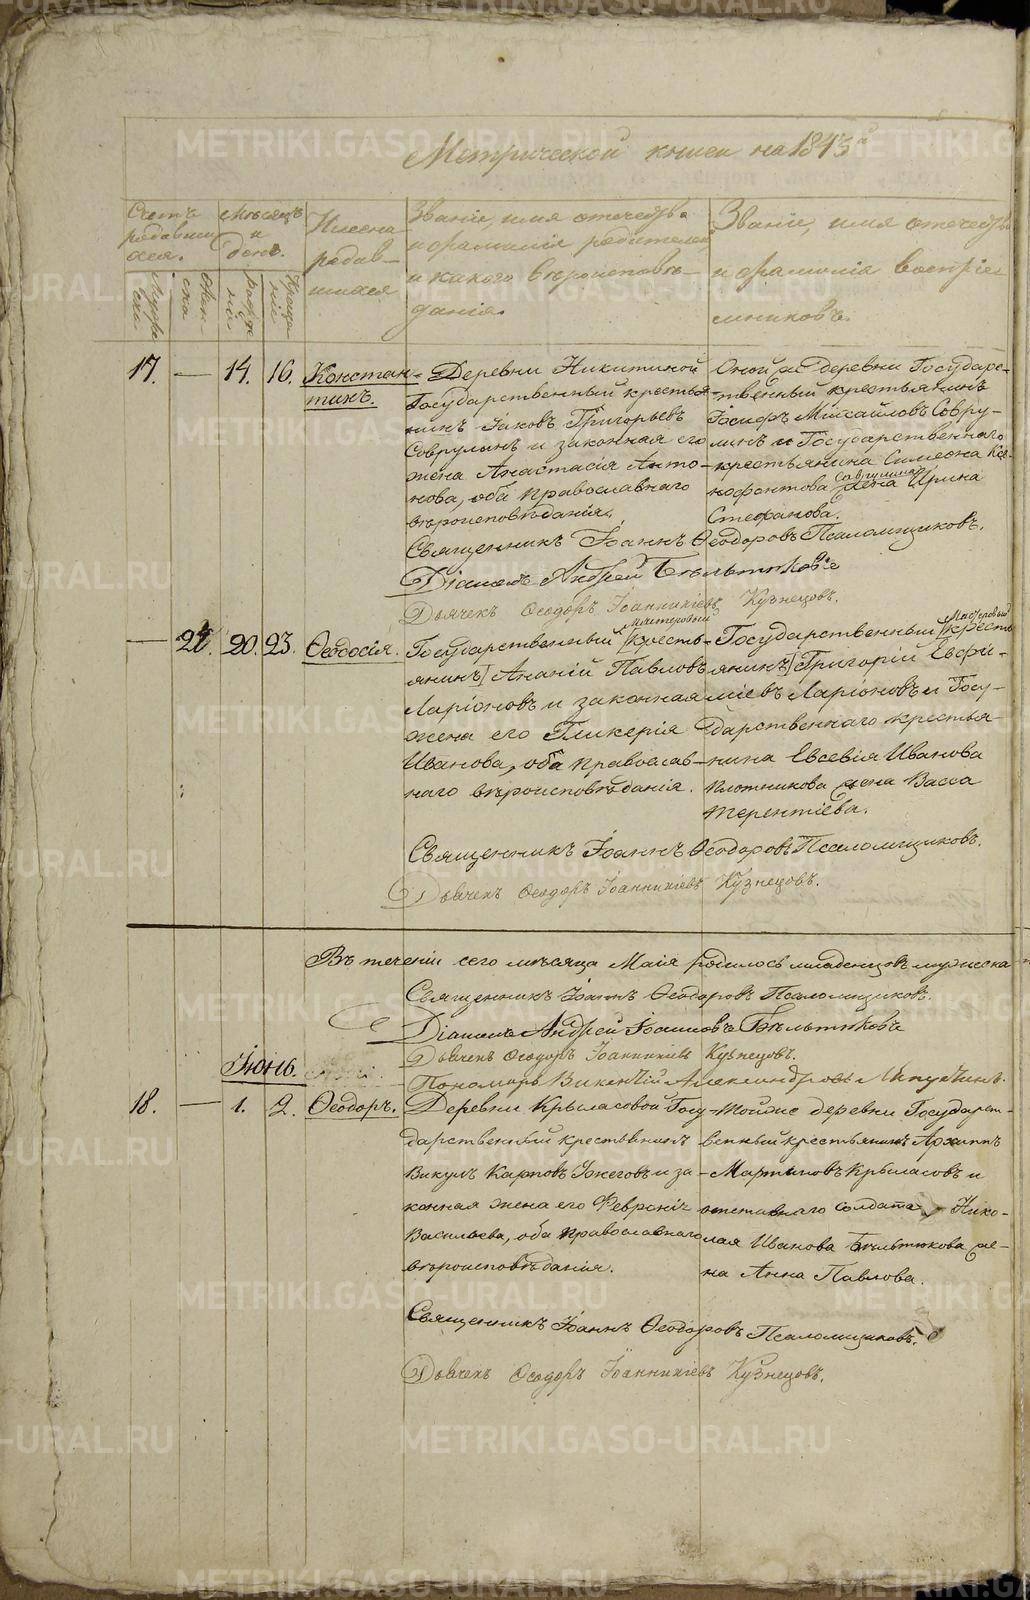 METRIKI.GASO-URAL.RU
Метрической книги на 1843й
Счетъ родившихся.
Мѣсяцъ и день.
Имена родившихся
Званіе, имя отечество и фамилія родителей и какого вѣроисповѣданія.
Званіе, имя отечество и фамилія воспріемниковъ.
рожденія
крещенія
17. — 14. 16. Констан-
тинъ.
Деревни Никитиной
Государственный крестья-
нинъ Іаковъ Григорьевъ
Соврулинъ и законная его
жена Анастасія Анто-
нова, оба православнаго
вѣроисповѣданія.
Оной же деревни Государс-
твенный крестьянинъ
Іосифъ Михайловъ Совру-
линъ и Государственнаго
крестьянина Симеона Ксе-
нофонтова Соврулина жена Ирина
Стефанова.
Священникъ Іоаннъ Ѳеодоровъ Псаломщиковъ.
Діаконъ Андрей Бѣльтюковъ
Дьячекъ Ѳеодоръ Іоанникіевъ Кузнецовъ.
— 20. 23. Ѳеодосія.
Государственный [кресть- мастеровый
янинъ] Ананій Павловъ
Ларіоновъ и законная
жена его Гликерія
Иванова, оба православ-
наго вѣроисповѣданія.
Государственный [кресть- Мастеровый
янинъ] Григорій Евфи-
міевъ Ларіоновъ и Госу-
дарственнаго крестья-
нина Евсевія Иванова
Плотникова жена Васса
Терентіева.
Священникъ Іоаннъ Ѳеодоровъ Псаломщиковъ.
Дьячекъ Ѳеодоръ Іоанникіевъ Кузнецовъ.
Въ теченіи сего мѣсяца Маія родилось младенцовъ мужеска
Священникъ Іоаннъ Ѳеодоровъ Псаломщиковъ.
Діаконъ Андрей Іоанновъ Бѣльтюковъ
Дьячекъ Ѳеодоръ Іоанникіевъ Кузнецовъ.
Пономарь Викентій Александровъ Лапутинъ.
Іюнь.
18. — 1. 2. Ѳеодоръ.
Деревни Крыласовой Госу-
дарственный крестьянинъ
Викулъ Карповъ Ужеговъ и за-
конная жена его Февронія
Васильева, оба православнаго
вѣроисповѣданія.
Тойже деревни Государст-
венный крестьянинъ Архиппъ
Мартиновъ Крыласовъ и
отставнаго солдата Нико-
лая Иванова Бѣльтюкова же-
на Анна Павлова.
Священникъ Іоаннъ Ѳеодоровъ Псаломщиковъ.
Дьячекъ Ѳеодоръ Іоанникіевъ Кузнецовъ.